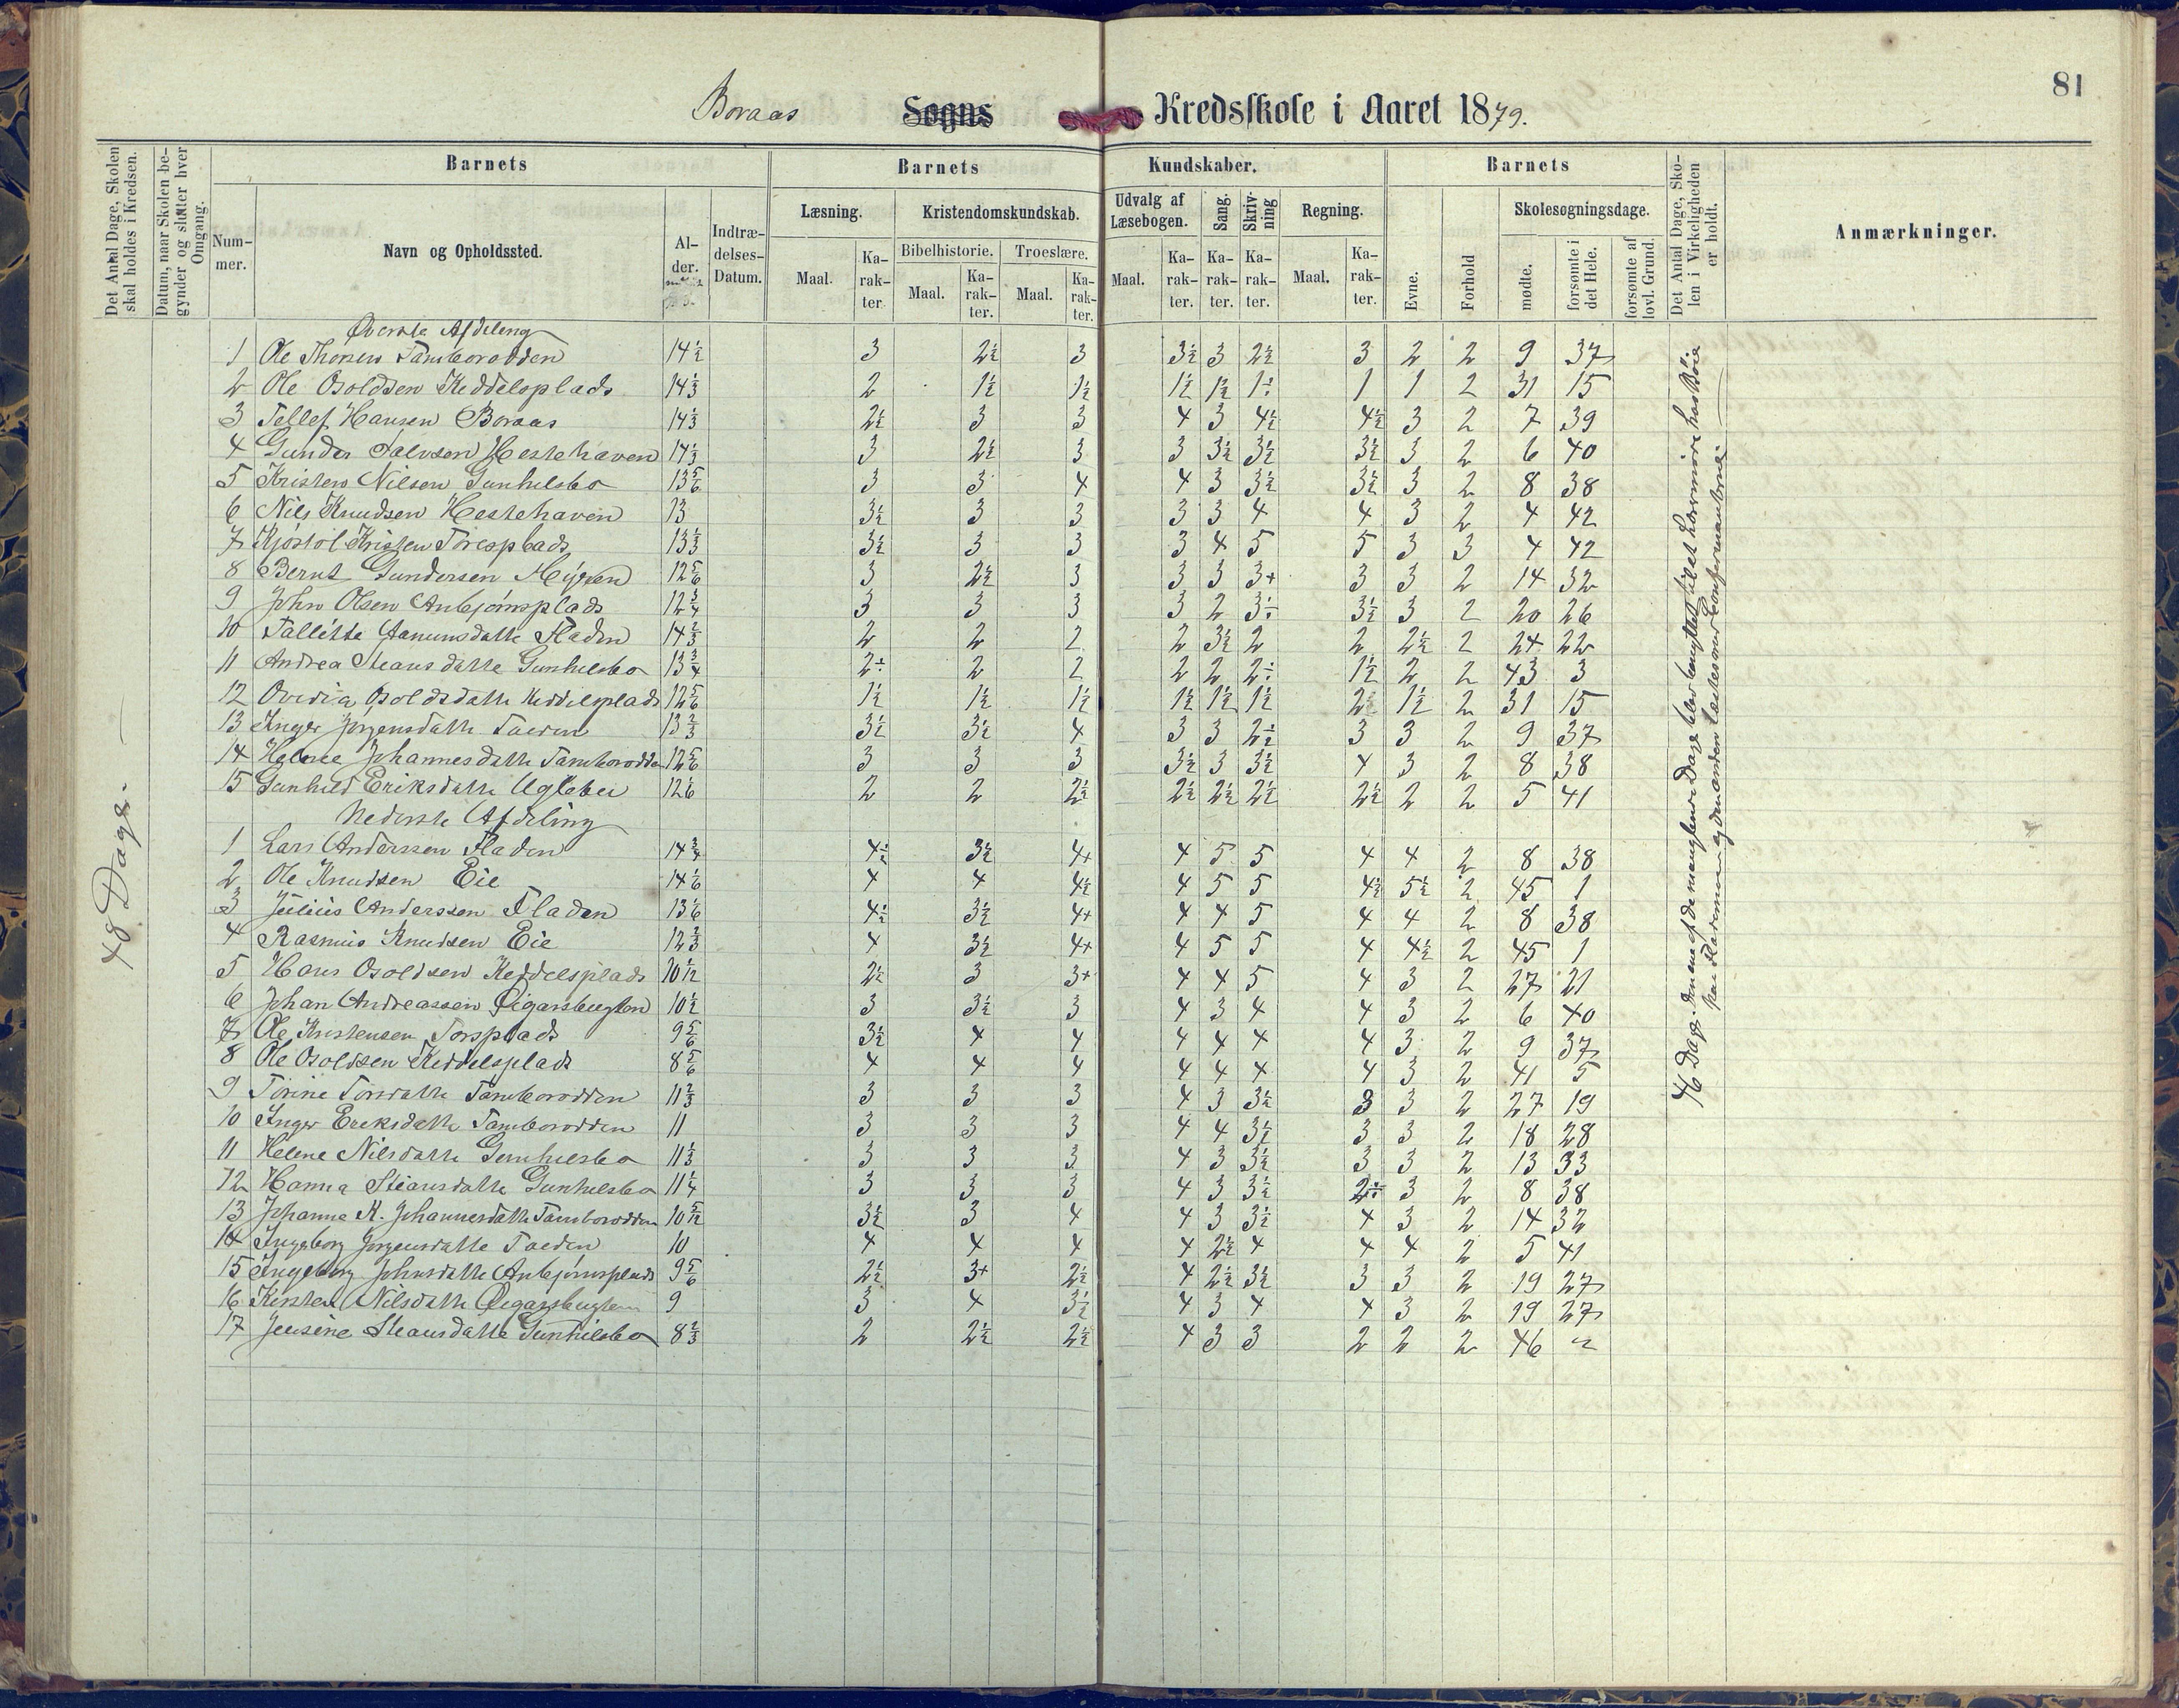 81
Boraas Sogns Kredsskole i Aaret 1879.
Det Antal Dage, Skolen skal holdes i Kredsen.
Datum, naar Skolen begynder og slutter hver Omgang.
Barnets
Nummer.
Navn og Opholdssted.
Alder.
Indtrædelses-Datum.
Barnets Kundskaber.
Læsning.
Maal. Karakter.
Kristendomskundskab.
Bibelhistorie. Troeslære.
Maal. Karakter. Maal. Karakter.
Udvalg af Læsebogen.
Maal. Karakter.
Sang. Karakter.
Skrivning Karakter.
Regning.
Maal. Karakter.
Barnets
Evne.
Forhold
Skolesøgningsdage.
mødte.
forsømte i det Hele.
forsømte af lovl. Grund.
Det Antal Dage, Skolen i Virkeligheden er holdt.
Anmærkninger.
48 Dage.
Øverste Afdeling
1 Ole Thorsen Tamborodden 14½ 3 2½ 3 3½ 3 2½ 3 2 2 9 37
2 Ole Osoldsen Keddelsplads 14⅓ 2 1½ 1½ 1½ 1½ 1÷ 1 1 2 31 15
3 Tellef Hansen Boraas 14⅓ 2½ 3 3 4 3 4½ 4½ 3 2 7 39
4 Gunder Halvsen Hestehaven 14⅓ 3 2½ 3 3 3½ 3½ 3½ 3 2 6 40
5 Kristen Nilsen Gunhilsbo 13⅚ 3 3 4 4 3 3½ 3½ 3 2 8 38
6 Nils Knudsen Hestehaven 13 3½ 3 3 3 3 4 4 3 2 4 42
7 Kjøstol Kristen Toresplads 13⅓ 3½ 3 3 3 4 5 5 3 3 4 42
8 Bernt Gundersen Myren 12⅚ 3 2½ 3 3 3 3+ 3 3 2 14 32
9 John Olsen Anbjørnsplads 12¾ 3 3 3 3 2 3÷ 3½ 3 2 20 26
10 Tallette Aanunsdatte Fladen 14⅔ 2 2 2 2 3½ 2 2 2½ 2 24 22
11 Andrea Steansdatte Gunhilsbo 13¾ 2÷ 2 2 2 2 2÷ 1½ 2 2 43 3
12 Ovidia Osoldsdatte Keddelsplads 12⅚ 1½ 1½ 1½ 1½ 1½ 1½ 2 1½ 2 31 15
13 Inger Jørgensdatte Taeden 13⅔ 3½ 3½ 4 3 3 2½ 3 3 2 9 37
14 Helene Johannesdatte Tamborodden 12⅚ 3 3 3 3½ 3 3½ 4 3 2 8 38
15 Gunhild Eriksdatte Uglebu 12⅙ 2 2 2½ 2½ 2½ 2½ 2½ 2 2 5 41
Nederste Afdeling
1 Lars Anderssen Fladen 14¾ 4½ 3½ 4+ 4 5 5 4 4 2 8 38
2 Ole Knudsen Eie 14⅙ 4 4 4½ 4 5 5 4½ 5½ 2 45 1
3 Julius Anderssen Fladen 13⅙ 4½ 3½ 4+ 4 4 5 4 4 2 8 38
4 Rasmus Knudsen Eie 12⅔ 4 3½ 4+ 4 5 5 4 4½ 2 45 1
5 Hans Osoldsen Keddelsplads 10 1/12 2½ 3 3+ 4 4 5 4 3 2 27 21
6 Johan Andreassen 10½ 3 3½ 3 4 3 4 4 3 2 6 40
7 Ole Kristensen Torsplads 9⅚ 3½ 4 4 4 4 4 4 3 2 9 37
8 Ole Osoldsen Keddelsplads 8⅚ 4 4 4 4 4 4 4 3 2 41 5
9 Torine Torsdatte Tamborodden 11⅔ 3 3 3 4 3 3½ 3 3 2 27 19
10 Inger Eriksdatte Tamborodden 11 3 3 3 4 4 3½ 3 3 2 18 28
11 Helene Nilsdatte Gunhilsbo 11⅓ 3 3 3 4 3 3½ 3 3 2 13 33
12 Hanna Steansdatte Gunhilsbo 11¼ 3 3 3 4 3 3½ 2÷ 3 2 8 38
13 Johanne K. Johannesdatte Tamborodden 10 5/12 3½ 3 4 4 3 3½ 4 3 2 14 32
14 Ingeborg Jørgensdatte Taeden 10 4 4 4 4 2½ 4 4 4 2 5 41
15 Ingeborg Johnsdatte Anbjørnsplads 9⅚ 2½ 3+ 2½ 4 2½ 3½ 3 3 2 19 27
16 Kirsten Nilsdatte 9 3 4 3½ 4 3 4 4 3 2 19 27
17 Jensine Steansdatte Gunhilsbo 8⅔ 2 2½ 2½ 4 3 3 2 2 2 46 "
46 Dage. Den ene af de manglende Dage blev benyttet til et Lærermøde hos Bøie
paa Flademoen og den anden